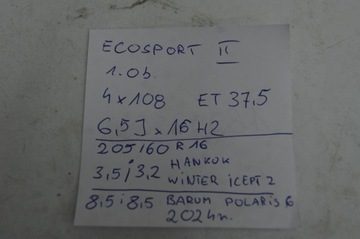 ECOSPORT II
1.0b.
4x108 ET 37,5
6,5J x 16 H2
205/60 R16
3,5 i 3,2 HANKUK
WINTER ICEPT 2
8,5 i 8,5 BARUM POLARIS 6
2024r.